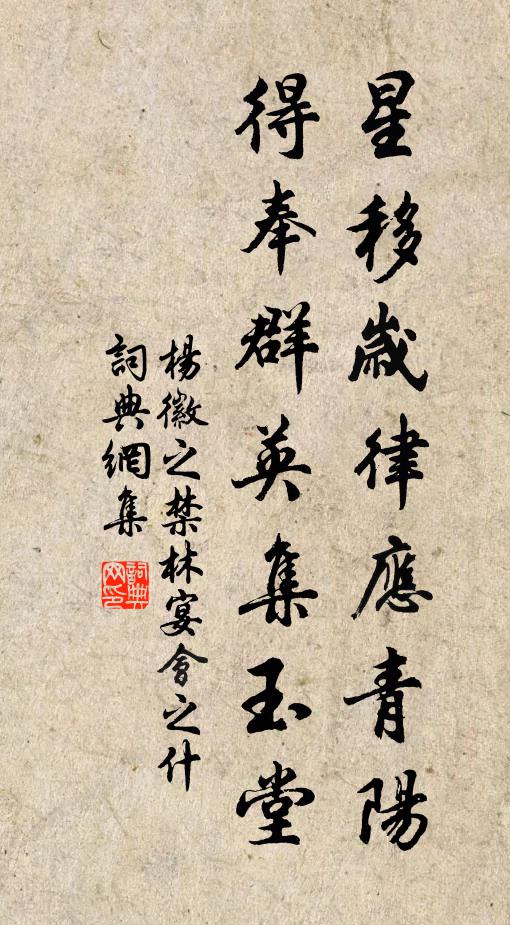 星移歲律應青陽
得奉群英集玉堂
楊徽之禁林宴會之什
詞典網集
詞典網印